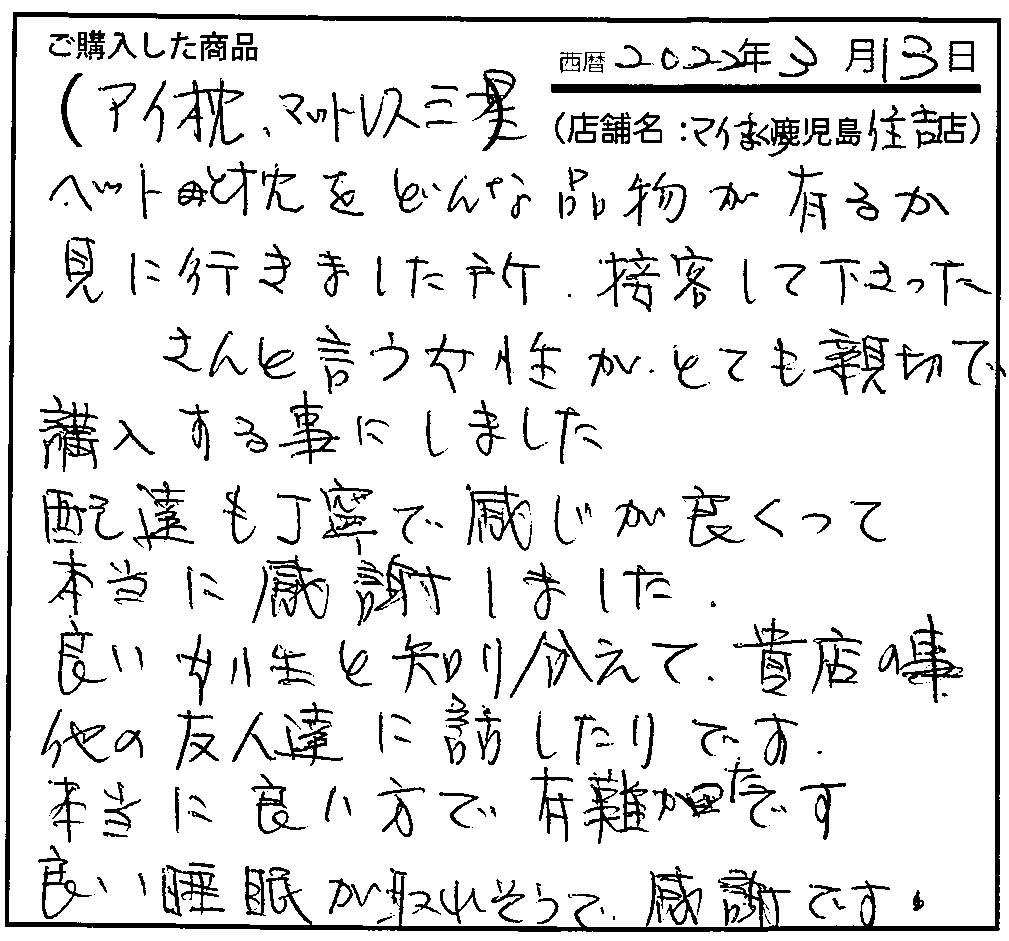 ご購入した商品
西暦 2022年3月13日
(アイ枕、マットレス三星
(店舗名:マイまくら鹿児島住吉店)
ベットと枕をどんな品物が有るか
見に行きました所.接客して下さった
さんと言う女性が.とても親切で
購入する事にしました
配達も丁寧で感じが良くって
本当に感謝しました.
良い女性と知り分えて.貴店の事
他の友人達に話したりです.
本当に良い方で有難かったです
良い睡眠が取れそうで感謝です.